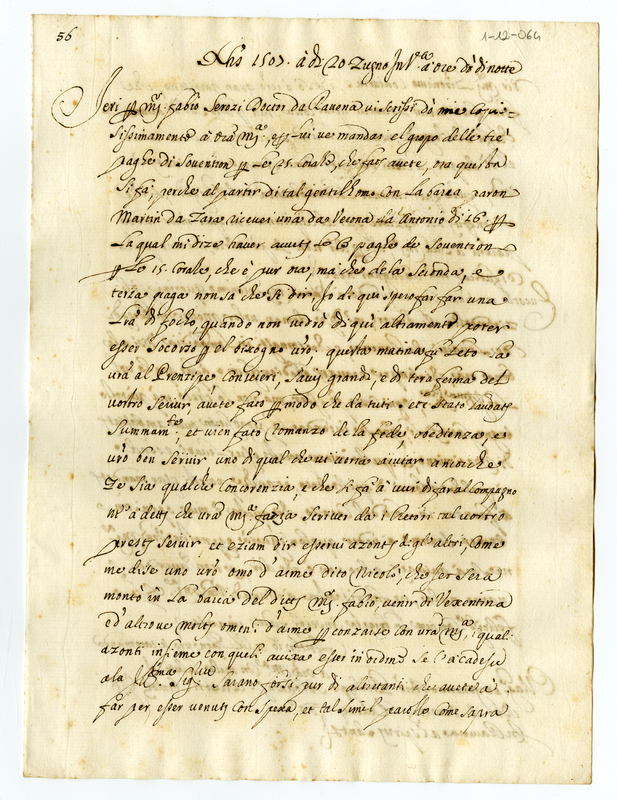 56
1-12-064
Xhs 1507. à dì 20 Zugno In Va. à ore do di notte
Jeri per mis. fabio Serozi Doctor da Ravena vi scrissi do mie
sissimamente à vra Ma., e per lui ve mandai el gropo delle tre
paghe di Sovention per le 25. Corale, che fate avete, ora questa
si fa, perche al partir di tal gentilhomo con la barca paron
Martin da Zara ricevei una da Verona de Antonio di 16. per
La qual mi dize haver avuto le paghe de Sovention
per Le 15. Corale, che è pur ora, mà che de la seconda, e
terza paga non sà che si dir, Jo di quì spero far far una
Lra. di focho, quando non vedrò di quì altramente poter
esser Socorso per el bisogno vro. questa matina fu Leto La
vra al Prenzipe Consieri, Savij grandi, e di terra ferma del
vostro servir, avete fato per modo che da tuti sete stato laudato
Summamte., et vien fato Romanzo de la fede, obedienza, e
vro ben servir, uno di qual che vi voria aiutar ancorche
Ge sia qualche Concorenzia, e che si fà à vui di far al Compagno
m'à detto che vra Ma. fazza scriver da i Retori tal vostro
presto servir, et eziam dir esservi azonti degl'altri, Come
me disse uno vro omo d'arme dito Nicolò, che Jer sera
montò in La barca del ditto Mis. fabio, venir di Vexentina
ed'altrove molti omeni d'arme per conzarse con vra Ma., i quali
azonti insieme con queli avixa esser in ordine se l'acadesse
ala Illma. Sigria. Sarano forsi pur di altretanti che avete à
far per esser venuti con spexa, et tal simil parole come sarra